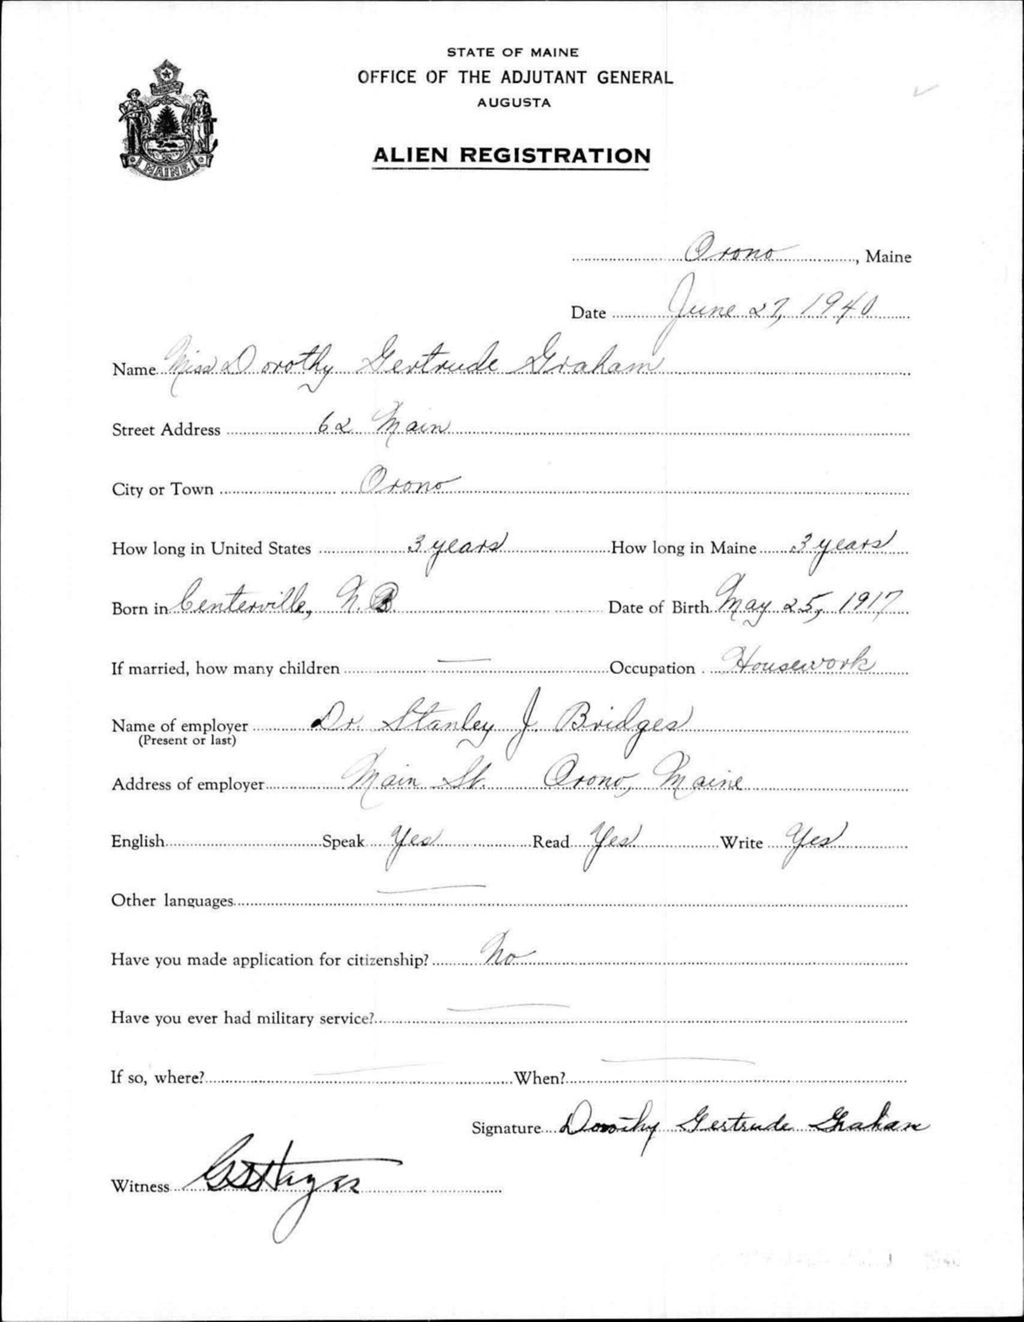 STATE OF MAINE
OFFICE OF THE ADJUTANT GENERAL
AUGUSTA
ALIEN REGISTRATION
MAINE
Orono, Maine
Date June 27, 1940
Name Miss Dorothy Gertrude Graham
Street Address 62 Main
City or Town Orono
How long in United States 3 years How long in Maine 3 years
Born in Centerville, N.B. Date of Birth May 25, 1917
If married, how many children — Occupation Housework
Name of employer Dr. Stanley J. Bridges
(Present or last)
Address of employer Main St. Orono, Maine
English Speak Yes Read Yes Write Yes
Other languages —
Have you made application for citizenship? No
Have you ever had military service? —
If so, where? — When? —
Signature Dorothy Gertrude Graham
Witness